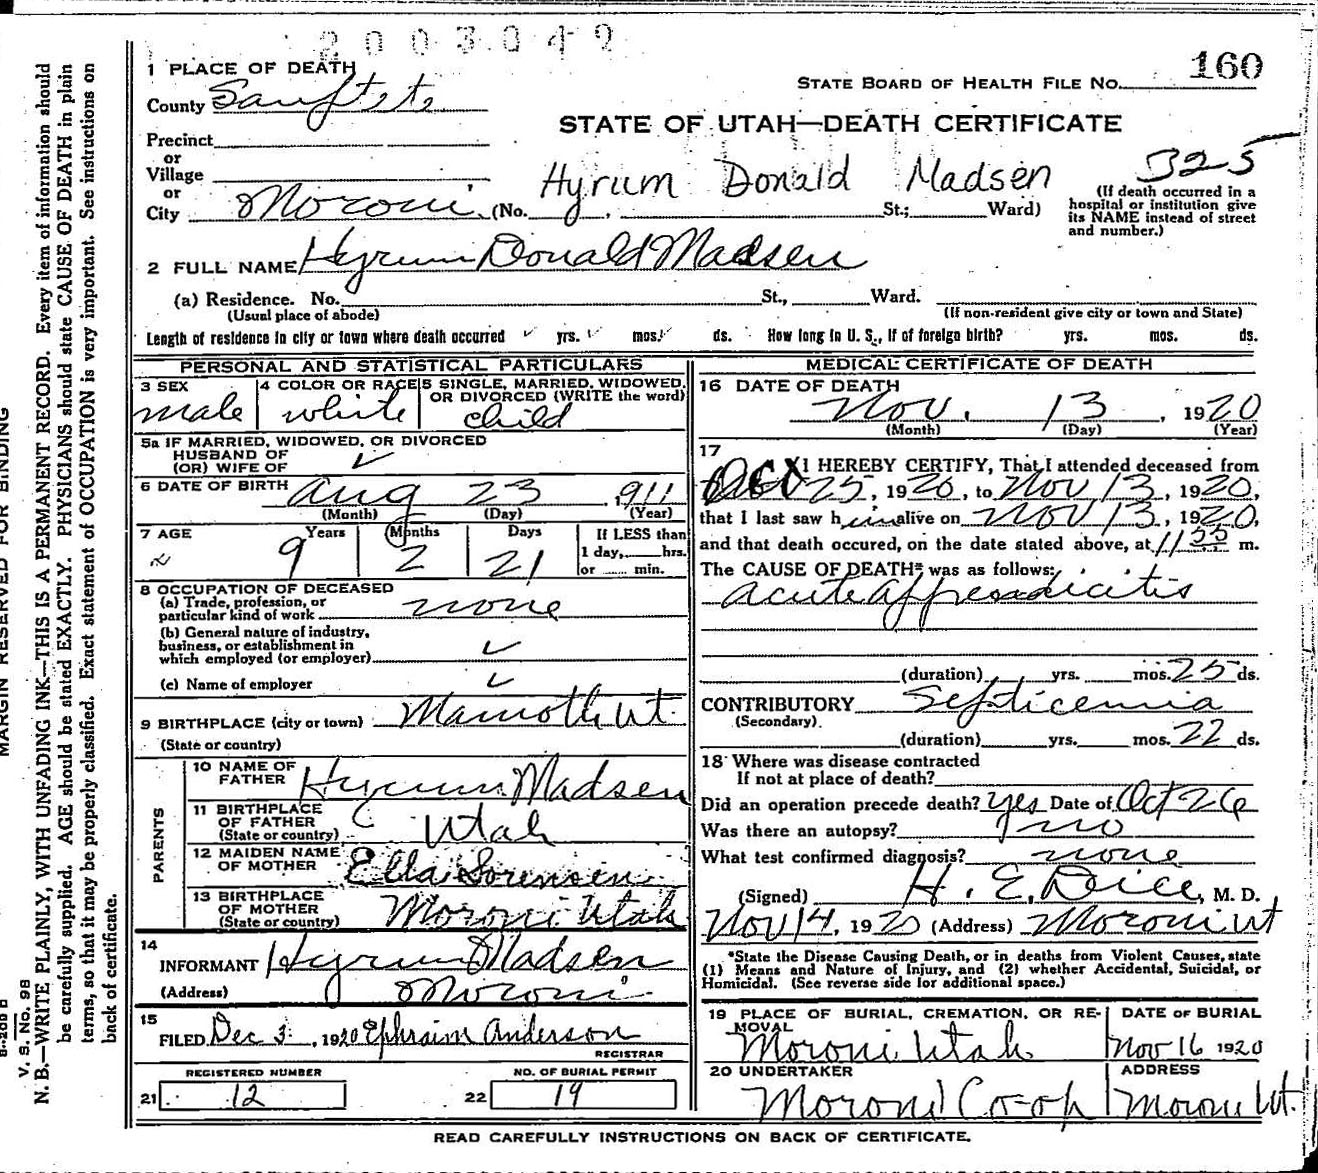 2003049
1 PLACE OF DEATH
County Sanpete
STATE BOARD OF HEALTH FILE NO. 160
STATE OF UTAH—DEATH CERTIFICATE
Precinct
or
Village
or
City Moroni (No. , St.; Ward)
Hyrum Donald Madsen
325
(If death occurred in a hospital or institution give its NAME instead of street and number.)
2 FULL NAME Hyrum Donald Madsen
(a) Residence. No. St., Ward.
(Usual place of abode) (If non-resident give city or town and State)
Length of residence in city or town where death occurred yrs. mos. ds. How long in U. S., if of foreign birth? yrs. mos. ds.
PERSONAL AND STATISTICAL PARTICULARS
3 SEX male
4 COLOR OR RACE white
5 SINGLE, MARRIED, WIDOWED, OR DIVORCED (WRITE the word) child
5a IF MARRIED, WIDOWED, OR DIVORCED
HUSBAND OF
(OR) WIFE OF ✓
6 DATE OF BIRTH Aug 23 1911
(Month) (Day) (Year)
7 AGE Years Months Days
9 2 21
If LESS than
1 day, hrs.
or min.
8 OCCUPATION OF DECEASED
(a) Trade, profession, or
particular kind of work none
(b) General nature of industry,
business, or establishment in
which employed (or employer) ✓
(c) Name of employer ✓
9 BIRTHPLACE (city or town) Mamoth Ut.
(State or country)
PARENTS
10 NAME OF
FATHER Hyrum Madsen
11 BIRTHPLACE
OF FATHER
(State or country) Utah
12 MAIDEN NAME
OF MOTHER Ella Sorensen
13 BIRTHPLACE
OF MOTHER
(State or country) Moroni Utah
14
INFORMANT Hyrum Madsen
(Address) Moroni
15
FILED Dec 3, 1920 Ephraim Anderson
REGISTRAR
REGISTERED NUMBER
21 12
NO. OF BURIAL PERMIT
22 19
MEDICAL CERTIFICATE OF DEATH
16 DATE OF DEATH
Nov. 13, 1920
(Month) (Day) (Year)
17
I HEREBY CERTIFY, That I attended deceased from
25, 1920, to Nov 13, 1920,
that I last saw him alive on Nov 13, 1920,
and that death occured, on the date stated above, at 11 55 m.
The CAUSE OF DEATH* was as follows:
acute appendicitis
(duration) yrs. mos. 25 ds.
CONTRIBUTORY Septicemia
(Secondary)
(duration) yrs. mos. 22 ds.
18 Where was disease contracted
If not at place of death?
Did an operation precede death? yes Date of Oct 26
Was there an autopsy? no
What test confirmed diagnosis? none
(Signed) H. E. Dice, M. D.
Nov 14, 1920 (Address) Moroni Ut
*State the Disease Causing Death, or in deaths from Violent Causes, state
(1) Means and Nature of Injury, and (2) whether Accidental, Suicidal, or
Homicidal. (See reverse side for additional space.)
19 PLACE OF BURIAL, CREMATION, OR RE-
MOVAL
Moroni Utah
DATE OF BURIAL
Nov 16 1920
20 UNDERTAKER
Moroni Co-op
ADDRESS
Moroni Ut.
READ CAREFULLY INSTRUCTIONS ON BACK OF CERTIFICATE.
MARGIN RESERVED FOR BINDING
V. S. No. 98
N. B.—WRITE PLAINLY, WITH UNFADING INK—THIS IS A PERMANENT RECORD. Every item of information should
be carefully supplied. AGE should be stated EXACTLY. PHYSICIANS should state CAUSE OF DEATH in plain
terms, so that it may be properly classified. Exact statement of OCCUPATION is very important. See instructions on
back of certificate.